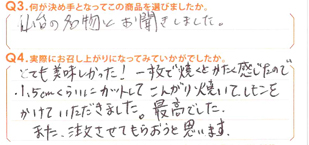 Q3.何が決め手となってこの商品を選びましたか。
仙台の名物とお聞きしました。
Q4.実際にお召し上がりになってみていかがでしたか。
とても美味しかった！一枚で焼くとかたく感じたので
1.5cmくらいにカットしてこんがり焼いてレモンを
かけていただきました。最高でした。
また、注文させてもらおうと思います。